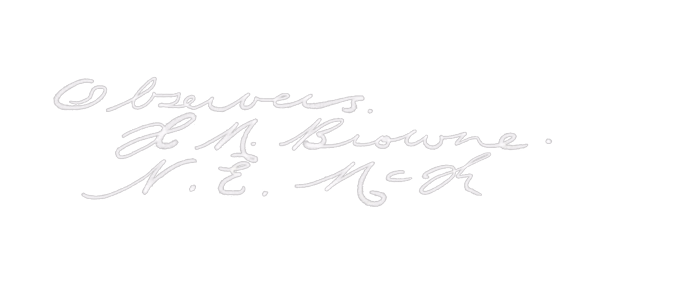 Observers.
H. N. Browne.
N. E. McK